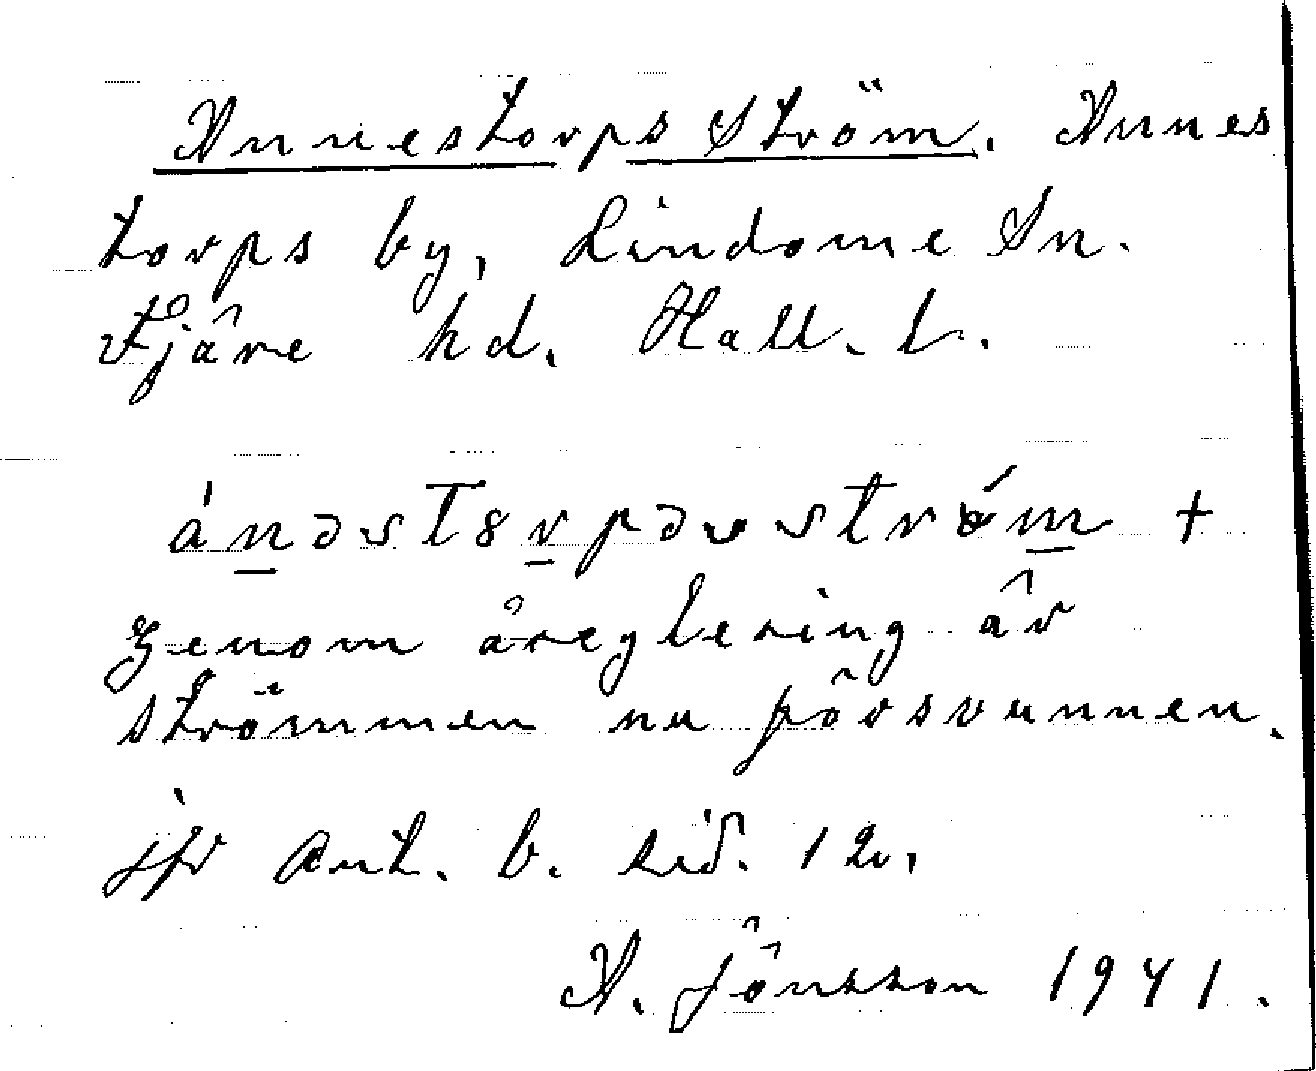 Annestorps Ström. Annes
torps by, Lindome Sn.
Fjäre hd. Hall. l.
ánəstərpəsström +
genom åreglering är
strömmen nu försvunnen.
jfr Ant. b. sid. 12.
A. Jönsson 1941.